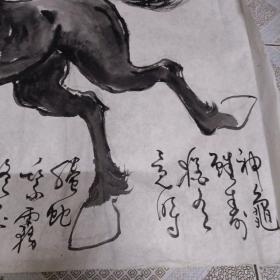 神龜
雖壽
猶有
竟時
騰蛇
乘霧
終為